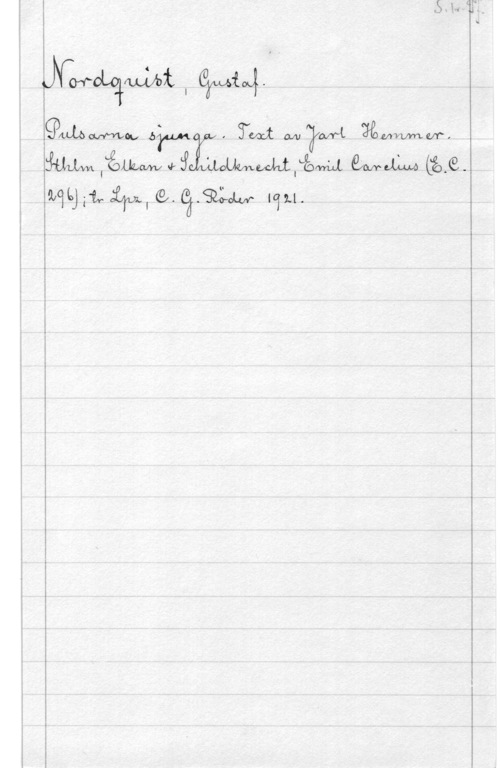 Nordquist, Gustaf.
Pulsarna sjunga. Text av Jarl Hemmer.
Sthlm, Elkan & Schildknecht, Emil Carelius (E.C.
296); tr Lpz, C. G. Röder 1921.